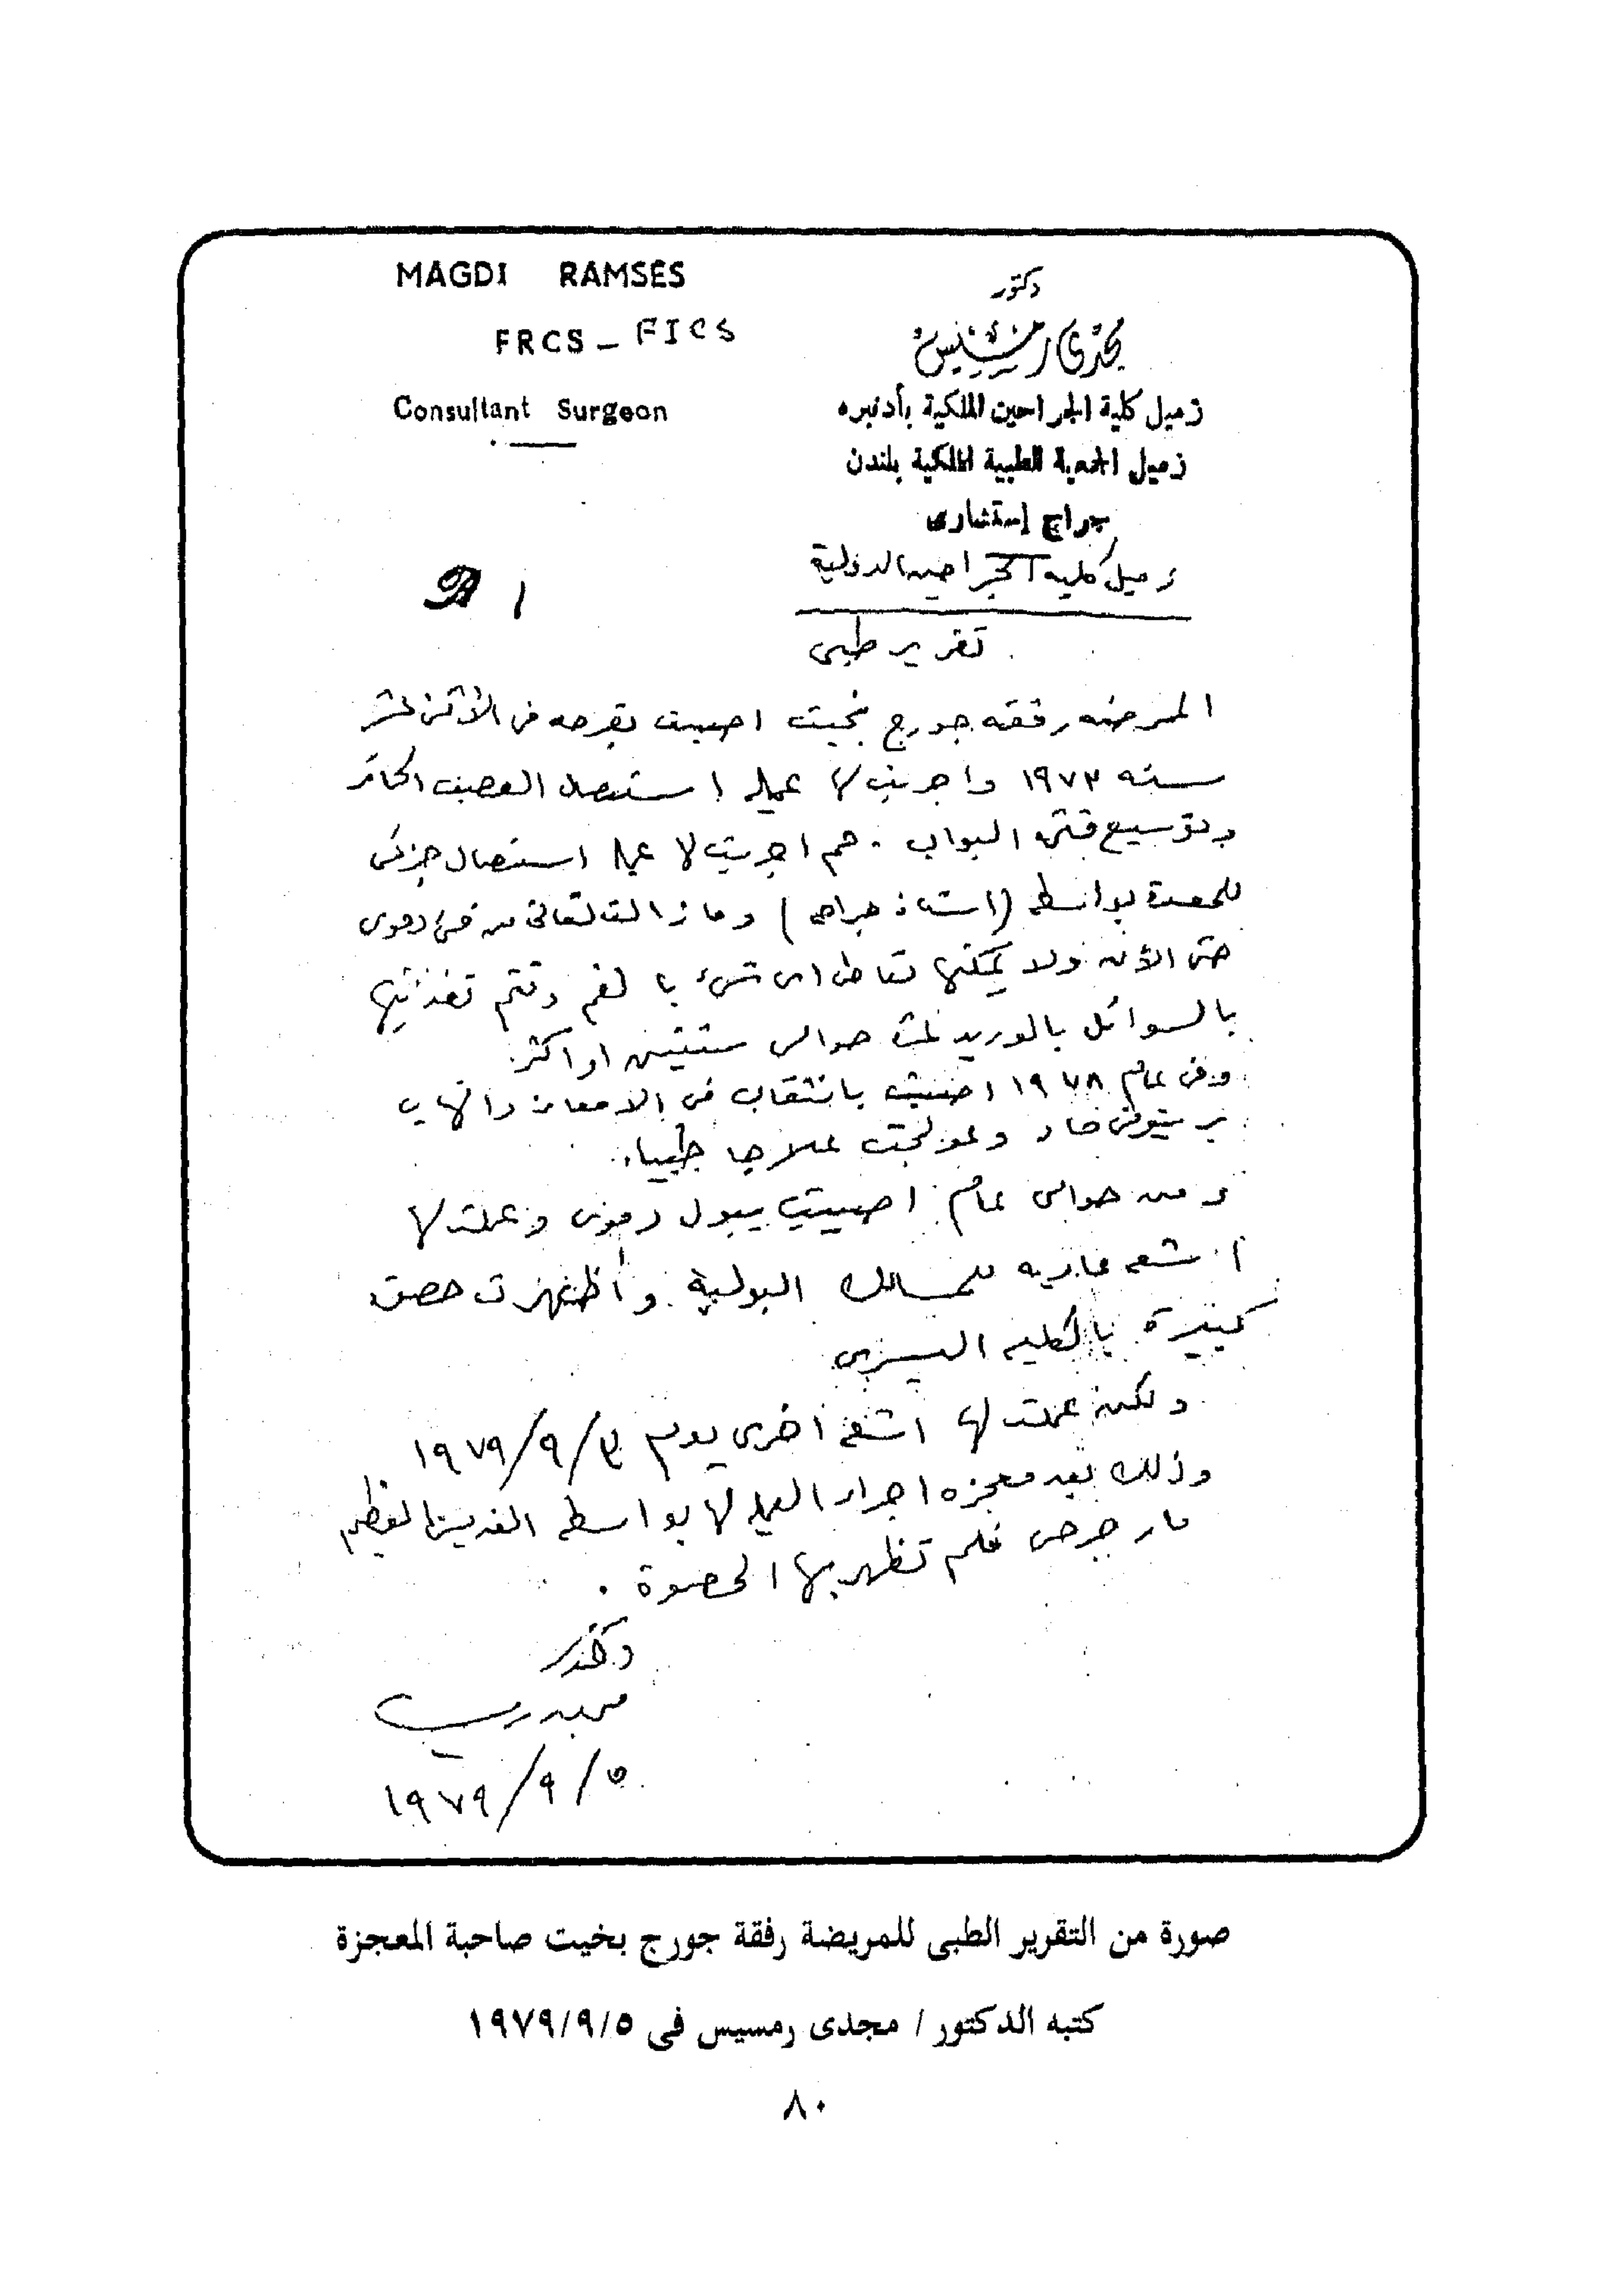 MAGDI RAMSES
FRCS – FICS
Consultant Surgeon
دكتور
مجدى رمسيس
زميل كلية الجراحين الملكية بأدنبره
زميل الجمعية الطبية الملكية بلندن
جراح إستشارى
زميل كلية الجراحين الدولية
تقرير طبى
المريضه رفقه جورج بخيت اصيبت بقرحه فى الأثنى عشر
سنه ١٩٧٣ واجريت لها عمليه استئصال العصب الحائر
وتوسيع فتحه البواب . ثم اجريت لها عمليه استئصال جزئى
للمعدة بواسطه (استاذ جراحه) ومازالت تعانى من قئ دموى
حتى الآن ولا يمكنها تعاطى اى شئ بالفم وتتم تغذيتها
بالسوائل بالوريد حوالى سنتين او اكثر
وفى عام ١٩٧٨ اصيبت بانثقاب فى الامعاء والتهاب
بريتونى حاد وعولجت علاجا طبيا .
ومن حوالى عام اصيبت ببول دموى وعملت لها
أشعه عاديه للمسالك البولية وأظهرت حصوة
كبيرة بالكليه اليسرى
ولكن عملت لها اشعه أخرى يوم ٣/٩/١٩٧٩
وذلك بعد معجزه اجراء العمليه لها بواسطه القديس العظيم
مار جرجس فلم تظهر بها الحصوة .
دكتور
٥/٩/١٩٧٩
صورة من التقرير الطبى للمريضة رفقة جورج بخيت صاحبة المعجزة
كتبه الدكتور / مجدى رمسيس فى ١٩٧٩/٩/٥
٨٠